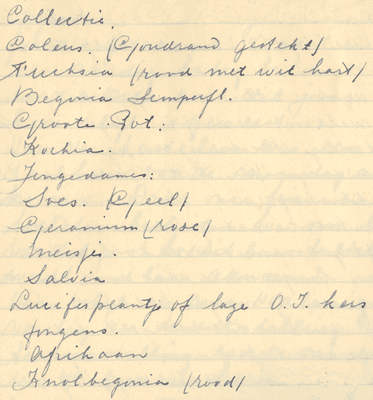 Collectie.
Coleus. (Goudrand gestekt)
Fuchsia (rood met wit hart)
Begonia Semperfl.
Groote Pot:
Kochia.
Jongedames:
Soes. (Geel)
Geranium (rose)
Meisjes.
Salvia
Lucifersplantje of lage O.I. kers
Jongens.
Afrikaan
Knolbegonia (rood)